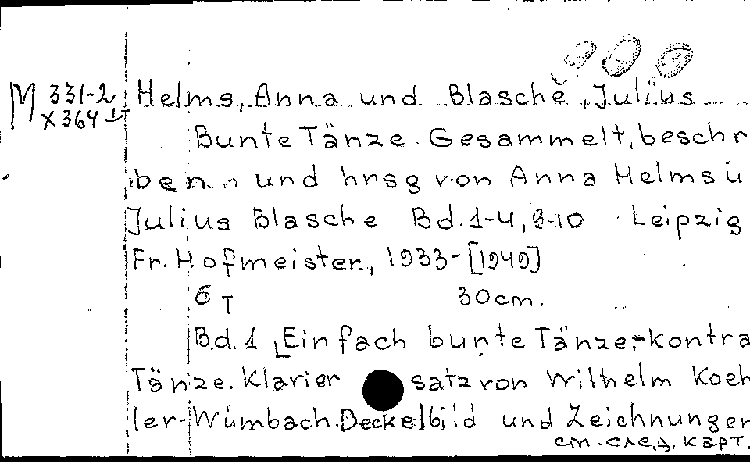 M 331-2 Helms, Anna und Blasche, Julius
X364
Bunte Tänze. Gesammelt, beschr
ben und hrsg von Anna Helms u
Julius Blasche Bd. 1-4, 8-10 Leipzig
Fr. Hofmeister, 1933-[1940]
6 т 30cm.
Bd. 1 Einfach bunte Tänze-kontra
Tänze. Klavier satz von Wilhelm Koeh
ler-Wümbach. Deckelbild und Zeichnungen
см. след. карт.